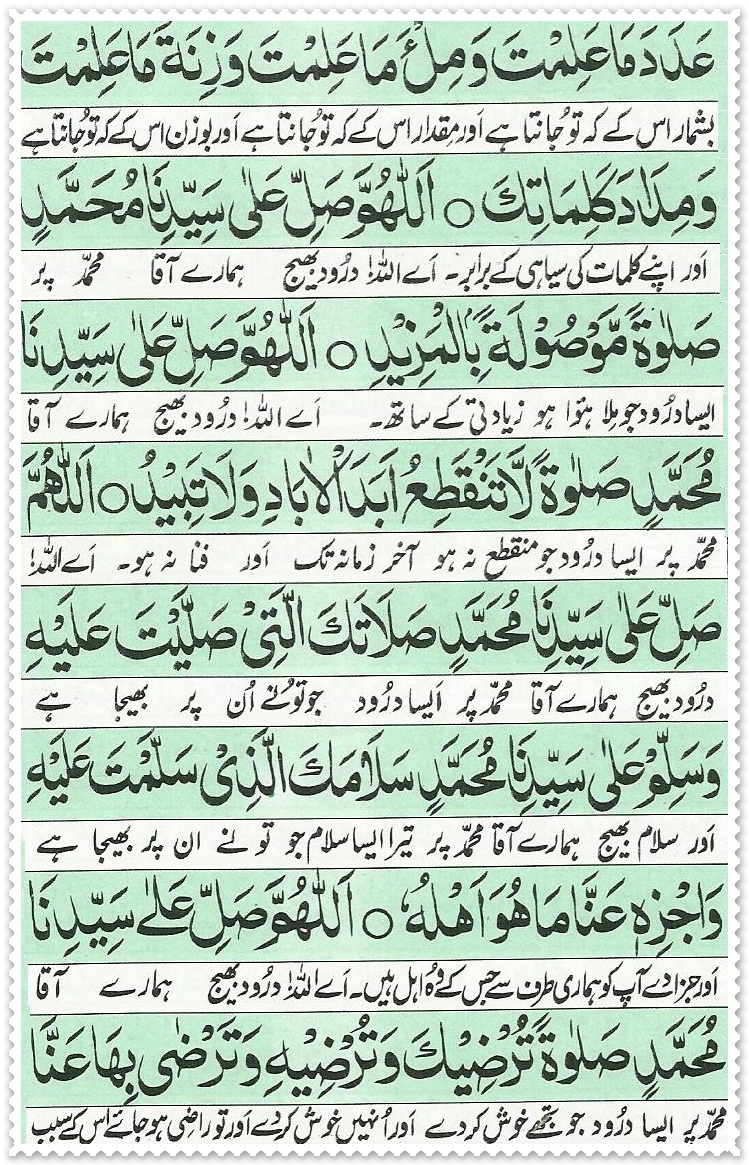 عَدَدَ مَا عَلِمْتَ وَمِلْءَ مَا عَلِمْتَ وَزِنَةَ مَا عَلِمْتَ
بشمار اس کے کہ تو جانتا ہے اور مقدار اس کے کہ تو جانتا ہے اور بوزن اس کے کہ تو جانتا ہے
وَمِدَادَ كَلِمَاتِكَ ○ اَللّٰهُمَّ صَلِّ عَلٰى سَيِّدِنَا مُحَمَّدٍ
اور اپنے کلمات کی سیاہی کے برابر۔ اے اللہ! درود بھیج ہمارے آقا محمدؐ پر
صَلٰوةً مَّوْصُوْلَةً بِالْمَزِيْدِ ○ اَللّٰهُمَّ صَلِّ عَلٰى سَيِّدِنَا
ایسا درود جو ملا ہوا ہو زیادتی کے ساتھ۔ اے اللہ! درود بھیج ہمارے آقا
مُحَمَّدٍ صَلٰوةً لَّا تَنْقَطِعُ اَبَدَ الْاٰبَادِ وَلَا تَبِيْدُ ○ اَللّٰهُمَّ
محمدؐ پر ایسا درود جو منقطع نہ ہو آخر زمانہ تک اور فنا نہ ہو۔ اے اللہ!
صَلِّ عَلٰى سَيِّدِنَا مُحَمَّدٍ صَلَاتَكَ الَّتِيْ صَلَّيْتَ عَلَيْهِ
درود بھیج ہمارے آقا محمدؐ پر ایسا درود جو تونے اُن پر بھیجا ہے
وَسَلِّمْ عَلٰى سَيِّدِنَا مُحَمَّدٍ سَلَامَكَ الَّذِيْ سَلَّمْتَ عَلَيْهِ
اور سلام بھیج ہمارے آقا محمدؐ پر تیرا ایسا سلام جو تو نے ان پر بھیجا ہے
وَاجْزِهٖ عَنَّا مَا هُوَ اَهْلُهٗ ○ اَللّٰهُمَّ صَلِّ عَلٰى سَيِّدِنَا
اور جزا دے آپ کو ہماری طرف سے جس کے وہ اہل ہیں۔ اے اللہ! درود بھیج ہمارے آقا
مُحَمَّدٍ صَلٰوةً تُرْضِيْكَ وَتُرْضِيْهِ وَتَرْضٰى بِهَا عَنَّا
محمدؐ پر ایسا درود جو تجھے خوش کر دے اور اُنہیں خوش کر دے اور تو راضی ہو جائے اس کے سبب